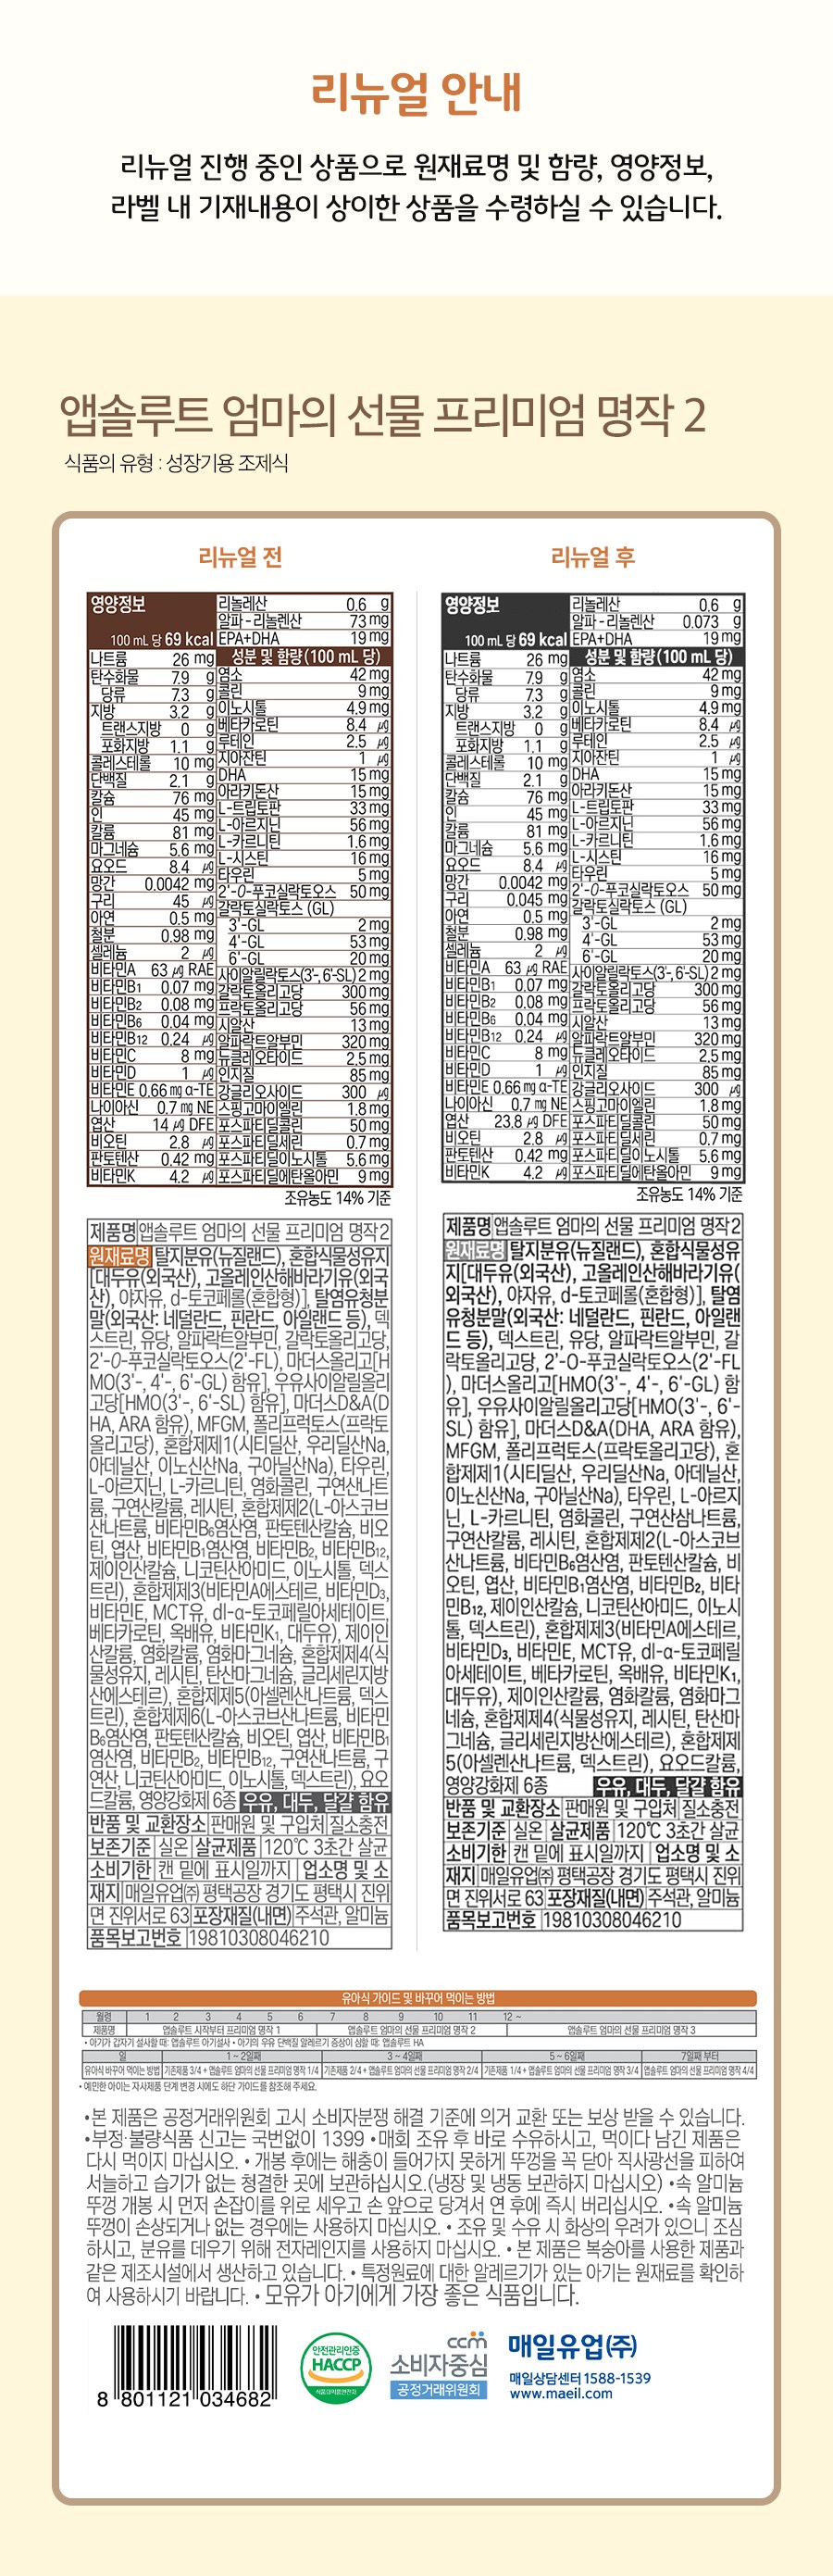 리뉴얼 안내
리뉴얼 진행 중인 상품으로 원재료명 및 함량, 영양정보,
라벨 내 기재내용이 상이한 상품을 수령하실 수 있습니다.
앱솔루트 엄마의 선물 프리미엄 명작 2
식품의 유형 : 성장기용 조제식
리뉴얼 전
영양정보
100 mL 당 69 kcal
나트륨 26 mg
탄수화물 7.9 g
당류 7.3 g
지방 3.2 g
트랜스지방 0 g
포화지방 1.1 g
콜레스테롤 10 mg
단백질 2.1 g
칼슘 76 mg
인 45 mg
칼륨 81 mg
마그네슘 5.6 mg
요오드 8.4 μg
망간 0.0042 mg
구리 45 μg
아연 0.5 mg
철분 0.98 mg
셀레늄 2 μg
비타민A 63 μg RAE
비타민B1 0.07 mg
비타민B2 0.08 mg
비타민B6 0.04 mg
비타민B12 0.24 μg
비타민C 8 mg
비타민D 1 μg
비타민E 0.66 mg α-TE
나이아신 0.7 mg NE
엽산 14 μg DFE
비오틴 2.8 μg
판토텐산 0.42 mg
비타민K 4.2 μg
리놀레산 0.6 g
알파-리놀렌산 73 mg
EPA+DHA 19 mg
성분 및 함량(100 mL 당)
염소 42 mg
콜린 9 mg
이노시톨 4.9 mg
베타카로틴 8.4 μg
루테인 2.5 μg
지아잔틴 1 μg
DHA 15 mg
아라키돈산 15 mg
L-트립토판 33 mg
L-아르지닌 56 mg
L-카르니틴 1.6 mg
L-시스틴 16 mg
타우린 5 mg
2'-O-푸코실락토오스 50 mg
갈락토실락토스 (GL)
3'-GL 2 mg
4'-GL 53 mg
6'-GL 20 mg
사이알릴락토스(3'-, 6'-SL) 2 mg
갈락토올리고당 300 mg
프락토올리고당 56 mg
시알산 13 mg
알파락트알부민 320 mg
뉴클레오타이드 2.5 mg
인지질 85 mg
강글리오사이드 300 μg
스핑고마이엘린 1.8 mg
포스파티딜콜린 50 mg
포스파티딜세린 0.7 mg
포스파티딜이노시톨 5.6 mg
포스파티딜에탄올아민 9 mg
조유농도 14% 기준
제품명 앱솔루트 엄마의 선물 프리미엄 명작 2
원재료명 탈지분유(뉴질랜드), 혼합식물성유지
[대두유(외국산), 고올레인산해바라기유(외국
산), 야자유, d-토코페롤(혼합형)], 탈염유청분
말(외국산: 네덜란드, 핀란드, 아일랜드 등), 덱
스트린, 유당, 알파락트알부민, 갈락토올리고당,
2'-O-푸코실락토오스(2'-FL), 마더스올리고[H
MO(3'-, 4'-, 6'-GL) 함유], 우유사이알릴올리
고당[HMO(3'-, 6'-SL) 함유], 마더스D&A(D
HA, ARA 함유), MFGM, 폴리프럭토스(프락토
올리고당), 혼합제제1(시티딜산, 우리딜산Na,
아데닐산, 이노신산Na, 구아닐산Na), 타우린,
L-아르지닌, L-카르니틴, 염화콜린, 구연산나트
륨, 구연산칼륨, 레시틴, 혼합제제2(L-아스코브
산나트륨, 비타민B6염산염, 판토텐산칼슘, 비오
틴, 엽산, 비타민B1염산염, 비타민B2, 비타민B12,
제이인산칼슘, 니코틴산아미드, 이노시톨, 덱스
트린), 혼합제제3(비타민A에스테르, 비타민D3,
비타민E, MCT유, dl-α-토코페릴아세테이트,
베타카로틴, 옥배유, 비타민K1, 대두유), 제이인
산칼륨, 염화칼륨, 염화마그네슘, 혼합제제4(식
물성유지, 레시틴, 탄산마그네슘, 글리세린지방
산에스테르), 혼합제제5(아셀렌산나트륨, 덱스
트린), 혼합제제6(L-아스코브산나트륨, 비타민
B6염산염, 판토텐산칼슘, 비오틴, 엽산, 비타민B1
염산염, 비타민B2, 비타민B12, 구연산나트륨, 구
연산, 니코틴산아미드, 이노시톨, 덱스트린), 요오
드칼륨, 영양강화제 6종 우유, 대두, 달걀 함유
반품 및 교환장소 판매원 및 구입처 질소충전
보존기준 실온 살균제품 120℃ 3초간 살균
소비기한 캔 밑에 표시일까지 업소명 및 소
재지 매일유업㈜ 평택공장 경기도 평택시 진위
면 진위서로 63 포장재질(내면) 주석관, 알미늄
품목보고번호 19810308046210
리뉴얼 후
영양정보
100 mL 당 69 kcal
나트륨 26 mg
탄수화물 7.9 g
당류 7.3 g
지방 3.2 g
트랜스지방 0 g
포화지방 1.1 g
콜레스테롤 10 mg
단백질 2.1 g
칼슘 76 mg
인 45 mg
칼륨 81 mg
마그네슘 5.6 mg
요오드 8.4 μg
망간 0.0042 mg
구리 0.045 mg
아연 0.5 mg
철분 0.98 mg
셀레늄 2 μg
비타민A 63 μg RAE
비타민B1 0.07 mg
비타민B2 0.08 mg
비타민B6 0.04 mg
비타민B12 0.24 μg
비타민C 8 mg
비타민D 1 μg
비타민E 0.66 mg α-TE
나이아신 0.7 mg NE
엽산 23.8 μg DFE
비오틴 2.8 μg
판토텐산 0.42 mg
비타민K 4.2 μg
리놀레산 0.6 g
알파-리놀렌산 0.073 g
EPA+DHA 19 mg
성분 및 함량(100 mL 당)
염소 42 mg
콜린 9 mg
이노시톨 4.9 mg
베타카로틴 8.4 μg
루테인 2.5 μg
지아잔틴 1 μg
DHA 15 mg
아라키돈산 15 mg
L-트립토판 33 mg
L-아르지닌 56 mg
L-카르니틴 1.6 mg
L-시스틴 16 mg
타우린 5 mg
2'-O-푸코실락토오스 50 mg
갈락토실락토스 (GL)
3'-GL 2 mg
4'-GL 53 mg
6'-GL 20 mg
사이알릴락토스(3'-, 6'-SL) 2 mg
갈락토올리고당 300 mg
프락토올리고당 56 mg
시알산 13 mg
알파락트알부민 320 mg
뉴클레오타이드 2.5 mg
인지질 85 mg
강글리오사이드 300 μg
스핑고마이엘린 1.8 mg
포스파티딜콜린 50 mg
포스파티딜세린 0.7 mg
포스파티딜이노시톨 5.6 mg
포스파티딜에탄올아민 9 mg
조유농도 14% 기준
제품명 앱솔루트 엄마의 선물 프리미엄 명작 2
원재료명 탈지분유(뉴질랜드), 혼합식물성유
지[대두유(외국산), 고올레인산해바라기유(
외국산), 야자유, d-토코페롤(혼합형)], 탈염
유청분말(외국산: 네덜란드, 핀란드, 아일랜
드 등), 덱스트린, 유당, 알파락트알부민, 갈
락토올리고당, 2'-O-푸코실락토오스(2'-FL
), 마더스올리고[HMO(3'-, 4'-, 6'-GL) 함
유], 우유사이알릴올리고당[HMO(3'-, 6'-
SL) 함유], 마더스D&A(DHA, ARA 함유),
MFGM, 폴리프럭토스(프락토올리고당), 혼
합제제1(시티딜산, 우리딜산Na, 아데닐산,
이노신산Na, 구아닐산Na), 타우린, L-아르지
닌, L-카르니틴, 염화콜린, 구연산삼나트륨,
구연산칼륨, 레시틴, 혼합제제2(L-아스코브
산나트륨, 비타민B6염산염, 판토텐산칼슘, 비
오틴, 엽산, 비타민B1염산염, 비타민B2, 비타
민B12, 제이인산칼슘, 니코틴산아미드, 이노시
톨, 덱스트린), 혼합제제3(비타민A에스테르,
비타민D3, 비타민E, MCT유, dl-α-토코페릴
아세테이트, 베타카로틴, 옥배유, 비타민K1,
대두유), 제이인산칼륨, 염화칼륨, 염화마그
네슘, 혼합제제4(식물성유지, 레시틴, 탄산마
그네슘, 글리세린지방산에스테르), 혼합제제
5(아셀렌산나트륨, 덱스트린), 요오드칼륨,
영양강화제 6종 우유, 대두, 달걀 함유
반품 및 교환장소 판매원 및 구입처 질소충전
보존기준 실온 살균제품 120℃ 3초간 살균
소비기한 캔 밑에 표시일까지 업소명 및 소
재지 매일유업㈜ 평택공장 경기도 평택시 진위
면 진위서로 63 포장재질(내면) 주석관, 알미늄
품목보고번호 19810308046210
유아식 가이드 및 바꾸어 먹이는 방법
월령 1 2 3 4 5 6 7 8 9 10 11 12 ~
제품명 앱솔루트 시작부터 프리미엄 명작 1 앱솔루트 엄마의 선물 프리미엄 명작 2 앱솔루트 엄마의 선물 프리미엄 명작 3
• 아기가 갑자기 설사할 때: 앱솔루트 아기설사 • 아기의 우유 단백질 알레르기 증상이 심할 때: 앱솔루트 HA
일 1 ~ 2일째 3 ~ 4일째 5 ~ 6일째 7일째 부터
유아식 바꾸어 먹이는 방법 기존제품 3/4 + 앱솔루트 엄마의 선물 프리미엄 명작 1/4 기존제품 2/4 + 앱솔루트 엄마의 선물 프리미엄 명작 2/4 기존제품 1/4 + 앱솔루트 엄마의 선물 프리미엄 명작 3/4 앱솔루트 엄마의 선물 프리미엄 명작 4/4
• 예민한 아이는 자사제품 단계 변경 시에도 하단 가이드를 참조해 주세요.
•본 제품은 공정거래위원회 고시 소비자분쟁 해결 기준에 의거 교환 또는 보상 받을 수 있습니다.
•부정·불량식품 신고는 국번없이 1399 •매회 조유 후 바로 수유하시고, 먹이다 남긴 제품은
다시 먹이지 마십시오. • 개봉 후에는 해충이 들어가지 못하게 뚜껑을 꼭 닫아 직사광선을 피하여
서늘하고 습기가 없는 청결한 곳에 보관하십시오.(냉장 및 냉동 보관하지 마십시오) •속 알미늄
뚜껑 개봉 시 먼저 손잡이를 위로 세우고 손 앞으로 당겨서 연 후에 즉시 버리십시오. •속 알미늄
뚜껑이 손상되거나 없는 경우에는 사용하지 마십시오. • 조유 및 수유 시 화상의 우려가 있으니 조심
하시고, 분유를 데우기 위해 전자레인지를 사용하지 마십시오. • 본 제품은 복숭아를 사용한 제품과
같은 제조시설에서 생산하고 있습니다. • 특정원료에 대한 알레르기가 있는 아기는 원재료를 확인하
여 사용하시기 바랍니다. • 모유가 아기에게 가장 좋은 식품입니다.
8 801121 034682
안전관리인증
HACCP
식품의약품안전처
ccm
소비자중심
공정거래위원회
매일유업(주)
매일상담센터 1588-1539
www.maeil.com